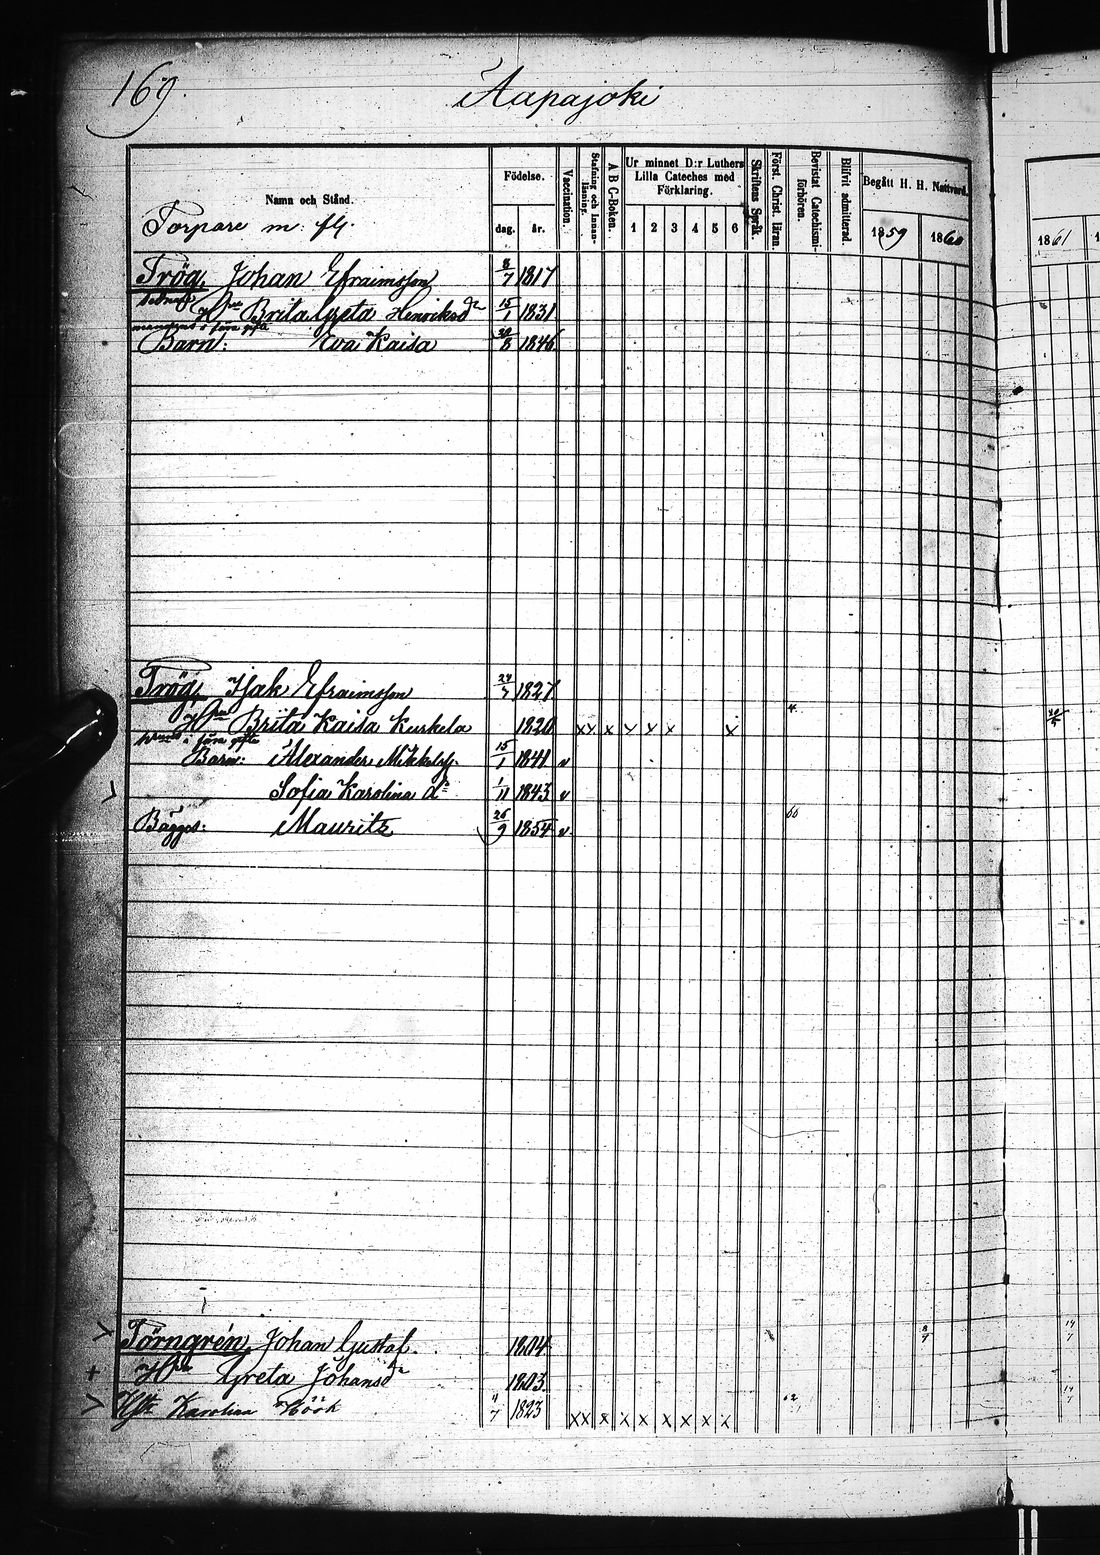 169.
Aapajoki
Namn och Stånd.
Torpare m. fl.
Födelse.
dag. år.
Vaccination.
Stafning och Innanläsning.
A B C-Boken.
Ur minnet D:r Luthers Lilla Cateches med Förklaring.
1 2 3 4 5 6
Skriftens Språk.
Först. Christ. läran.
Bevistat Catechismiförhören.
Blifvit admitterad.
Begått H. H. Nattvard.
1859 1860 1861
Trög, Johan Efraimsson 8/7 1817
Hru Brita Greta Henriksdr 15/1 1831
Barn: Eva Kaisa 20/8 1846
Trög, Isak Efraimsson 24/7 1827
Hru Brita Kaisa Kuskela 1820 x x x x x x x 4.
Barn: Alexander Mikkelss. 15/1 1841 v
Sofia Karolina dr 1/11 1843 v
Bägges: Mauritz 26/9 1854 v 66
Törngrén, Johan Gustaf 1804 8/7 14/7
+ Hru Greta Johansdr 1803
Hst Karolina Höök 11/7 1823 x x x x x x x x x 62 14/7